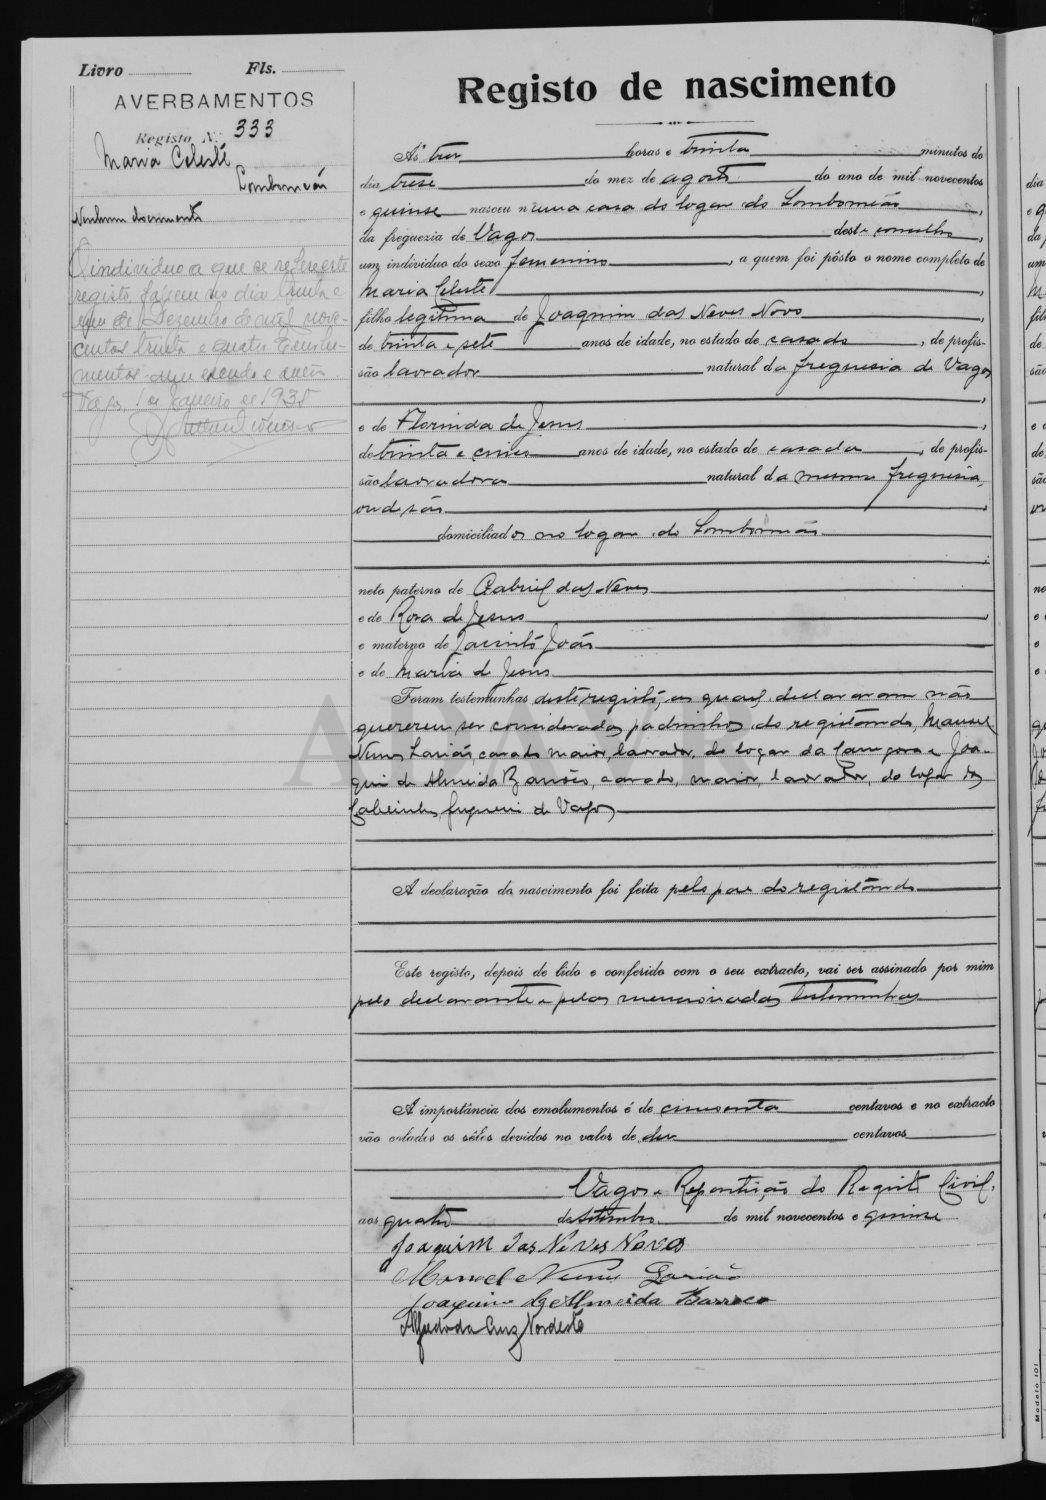 Livro Fls.
AVERBAMENTOS
Registo N.º 333
Maria Celeste
Lombomeão
Nenhum documento
O individuo a que se refere este
registo, faleceu no dia trinta e
um de Dezembro de mil nove-
centos trinta e quatro. Emolu-
mentos um escudo e meio.
Vagos, 1 de Janeiro de 1935
Registo de nascimento
Ás tres horas e trinta minutos do
dia trese do mez de agosto do ano de mil novecentos
e quinse nasceu n uma casa do logar do Lombomeão,
da freguezia de Vagos deste concelho,
um individuo do sexo femenino, a quem foi pôsto o nome completo de
Maria Celeste,
filha legitima de Joaquim das Neves Novo,
de trinta e sete anos de idade, no estado de casado, de profis-
são lavrador natural da freguesia de Vagos
,
e de Florinda de Jesus,
de trinta e cinco anos de idade, no estado de casada, de profis-
são lavradora natural da mesma freguesia,
onde são,
domiciliados no logar do Lombomeão
;
neto paterno de Gabriel das Neves
e de Rosa de Jesus,
e materno de Jacinto João
e de Maria de Jesus
Foram testemunhas deste registo, as quaes declararam não
quererem ser consideradas padrinhos do registando, Manuel
Nunes Larião, casado, maior, lavrador, do logar da e Joa-
quim de Almeida Barroco, casado, maior, lavrador, do logar das
freguesia de Vagos
A declaração do nascimento foi feita pelo pae do registando
Este registo, depois de lido e conferido com o seu extracto, vai ser assinado por mim
pelo declarante e pelas mencionadas testemunhas
A importância dos emolumentos é de cincoenta centavos e no extracto
vão colados os sêlos devidos no valor de dez centavos
Vagos e Repartição do Registo Civil,
aos quatro de Setembro de mil novecentos e quinse
Joaquim das Neves Novo
Manoel Nunes Larião
Joaquim de Almeida Barroco
Alfredo da Cruz Nordeste
Modelo 101